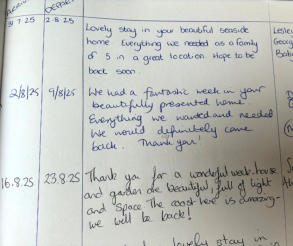 31.7.25 2.8.25 Lovely stay in your beautiful seaside
home. Everything we needed as a family
of 5 in a great location. Hope to be
back soon
2/8/25 9/8/25 We had a fantastic week in your
beautifully presented home.
Everything we wanted and needed
We would definitely come
back. Thank you!
16.8.25 23.8.25 Thank you for a wonderful week, house
and garden are beautiful, full of light
and space. The coast here is amazing-
we will be back!
lovely stay in